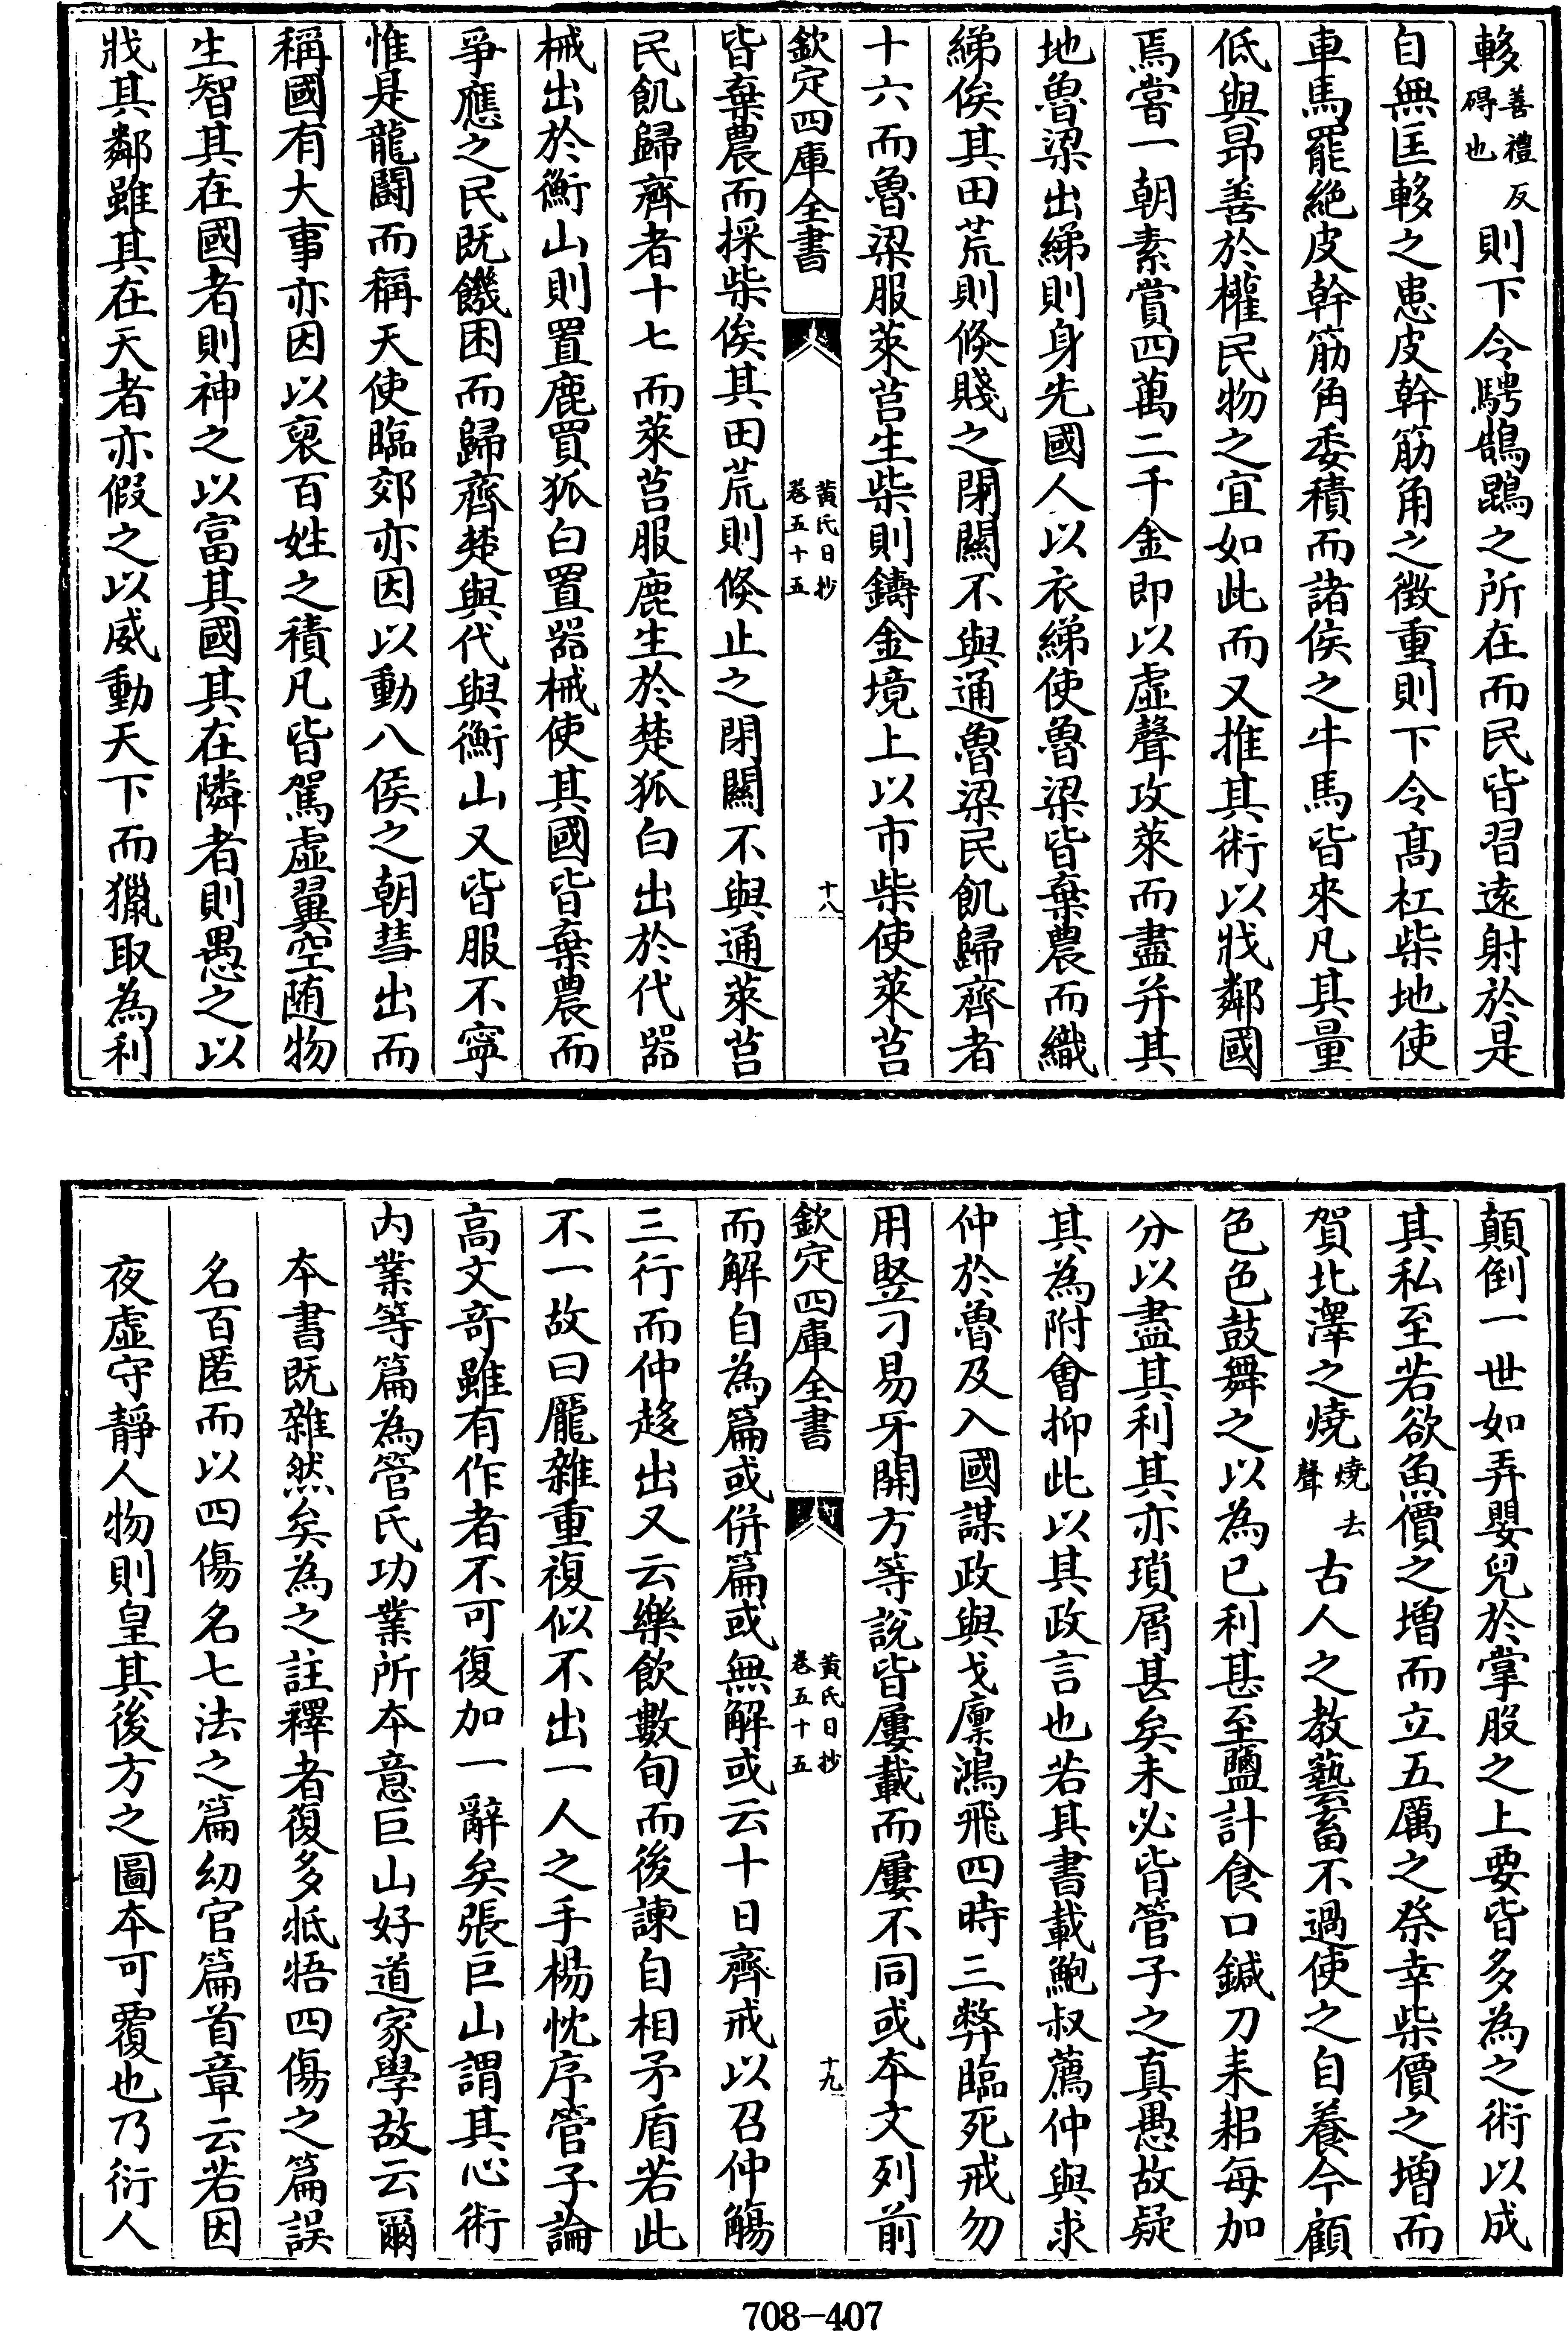 軫善禮反碍也則下令騁鵠鵾之所在而民皆習遠射於是
自無匡軫之患皮幹筋角之徴重則下令髙杠柴地使
車馬罷絶皮幹筋角委積而諸侯之牛馬皆來凡其量
低與昂善於權民物之宜如此而又推其術以戕鄰國
焉嘗一朝素賞四萬二千金即以虚聲攻萊而盡并其
地魯梁出綈則身先國人以衣綈使魯梁皆棄農而織
綈俟其田荒則倏賤之閉關不與通魯梁民飢歸齊者
十六而魯梁服萊莒生柴則鑄金境上以市柴使萊莒
欽定四庫全書 黄氏日抄 卷五十五 十八
皆棄農而採柴俟其田荒則倏止之閉關不與通萊莒
民飢歸齊者十七而萊莒服鹿生於楚狐白出於代器
械出於衡山則置鹿買狐白置器械使其國皆棄農而
爭應之民既饑困而歸齊楚與代與衡山又皆服不寧
惟是龍闘而稱天使臨郊亦因以動八侯之朝彗出而
稱國有大事亦因以裒百姓之積凡皆駕虚翼空随物
生智其在國者則神之以富其國其在隣者則愚之以
戕其鄰雖其在天者亦假之以威動天下而獵取為利
顛倒一世如弄嬰兒於掌股之上要皆多為之術以成
其私至若欲魚價之増而立五厲之祭幸柴價之増而
賀北澤之燒燒去聲古人之教藝畜不過使之自養今顧
色色鼓舞之以為已利甚至鹽計食口鍼刀耒耜每加
分以盡其利其亦瑣屑甚矣未必皆管子之真愚故疑
其為附會抑此以其政言也若其書載鮑叔薦仲與求
仲於魯及入國謀政與戈廩鴻飛四時三弊臨死戒勿
用竪刁易牙開方等說皆屢載而屢不同或本文列前
欽定四庫全書 黄氏日抄 卷五十五 十九
而解自為篇或併篇或無解或云十日齊戒以召仲觴
三行而仲趍出又云樂飲數旬而後諫自相矛盾若此
不一故曰龎雜重複似不出一人之手楊忱序管子論
高文竒雖有作者不可復加一辭矣張巨山謂其心術
内業等篇為管氏功業所本意巨山好道家學故云爾
本書既雜然矣為之註釋者復多牴牾四傷之篇誤
名百匿而以四傷名七法之篇幼官篇首章云若因
夜虚守靜人物則皇其後方之圖本可覆也乃衍人
708-407